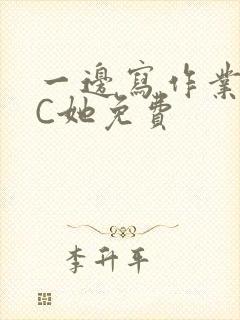 一邊寫作業
C她免費
李升平